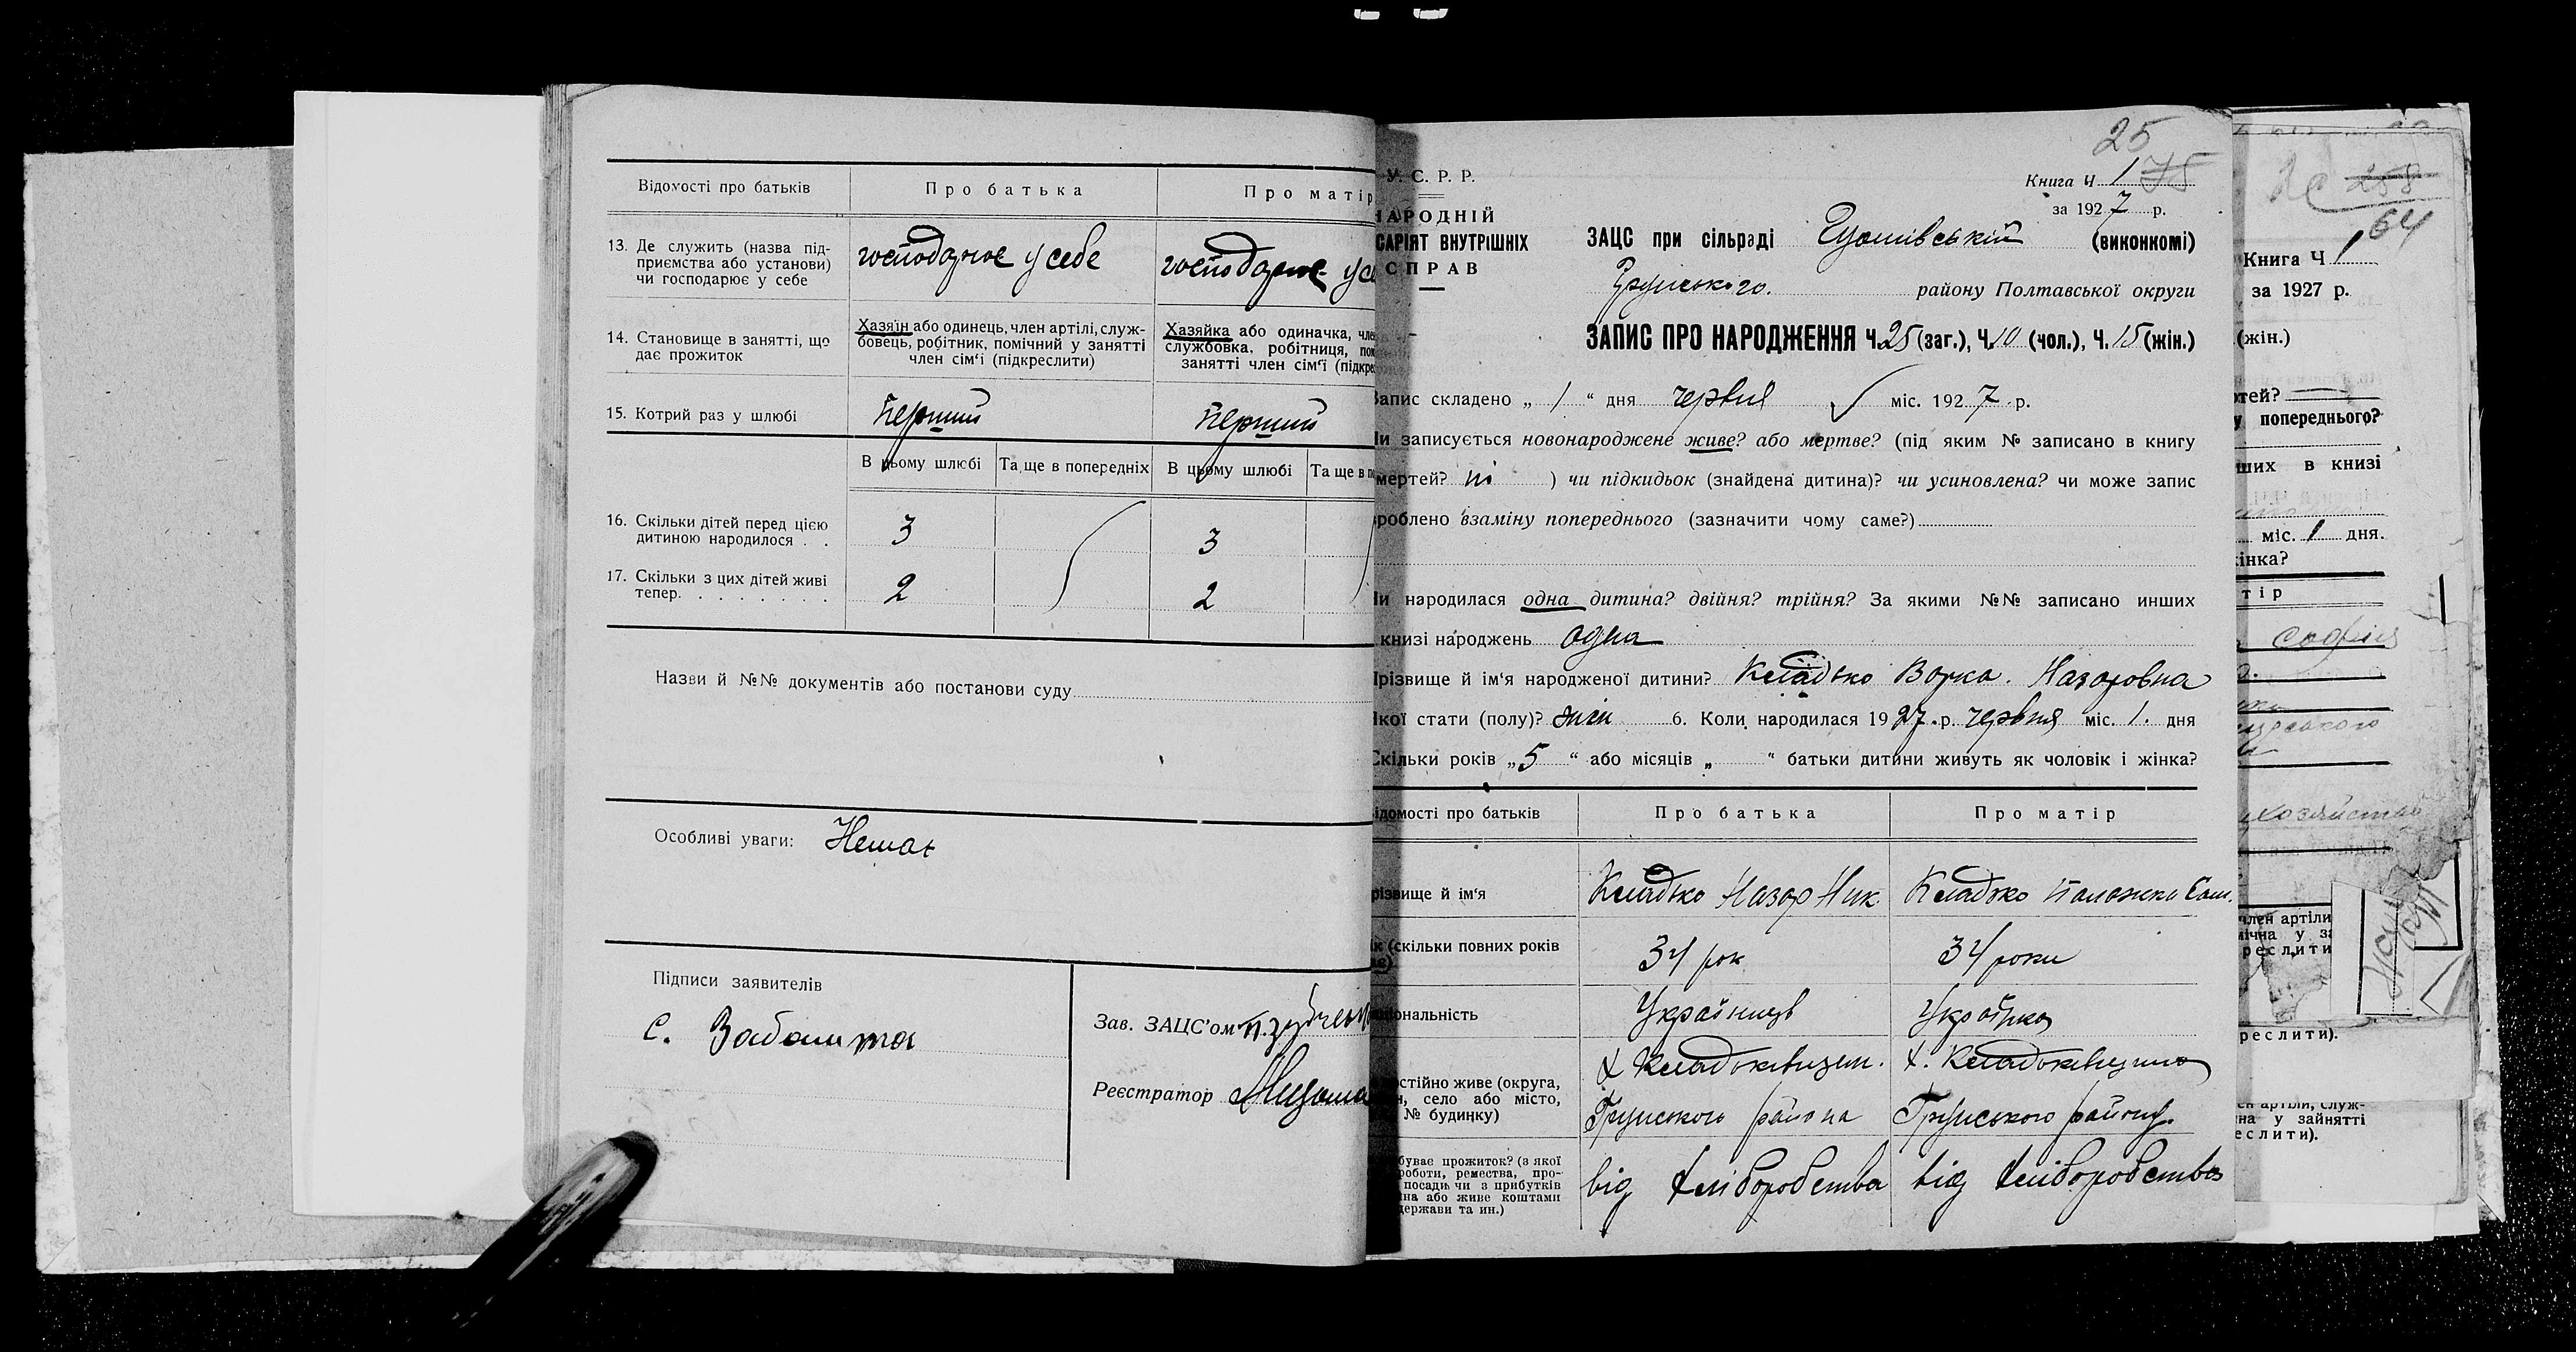 Відомості про батьків
Про батька
Про матір
13. Де служить (назва під-
приємства або установи)
чи господарює у себе
господарює у себе
господарює
14. Становище в занятті, що
дає прожиток
Хазяїн або одинець, член артілі, служ-
бовець, робітник, помічний у занятті
член сім'ї (підкреслити)
Хазяйка або одиначка,
службовка, робітниця,
занятті член сім'ї
15. Котрий раз у шлюбі
перший
перший
В цьому шлюбі
Та ще в попередніх
В цьому шлюбі
Та ще в
16. Скільки дітей перед цією
дитиною народилося . .
3
3
17. Скільки з цих дітей живі
тепер. . . . . . . .
2
2
Назви й №№ документів або постанови суду
Особливі уваги: Немає
Підписи заявителів
С. Забашта
Зав. ЗАЦС'ом
Реєстратор
25
У. С. Р. Р.
Книга Ч 1 75
за 1927 р.
НАРОДНІЙ
САРІЯТ ВНУТРІШНІХ
СПРАВ
ЗАЦС при сільраді (виконкомі)
Грунського району Полтавської округи
ЗАПИС ПРО НАРОДЖЕННЯ Ч. 25 (заг.), Ч. 10 (чол.), Ч. 15 (жін.)
Запис складено „ 1 “ дня червня міс. 1927 р.
Чи записується новонароджене живе? або мертве? (під яким № записано в книгу
смертей? ні ) чи підкидьок (знайдена дитина)? чи усиновлена? чи може запис
зроблено взаміну попереднього (зазначити чому саме?)
Чи народилася одна дитина? двійня? трійня? За якими №№ записано инших
книзі народжень одна
Прізвище й ім'я народженої дитини? Кладько Варка Назаровна
Якої стати (полу)? жін 6. Коли народилася 1927 р. червня міс. 1. дня
Скільки років „ 5 “ або місяців „ “ батьки дитини живуть як чоловік і жінка?
Відомості про батьків
Про батька
Про матір
Прізвище й ім'я
Кладько Назар Ник.
Кладько
(скільки повних років
34 рок
34 роки
національність
Українець
Українка
постійно живе (округа,
село або місто,
№ будинку)
х. Кладьківщин.
Грунського района
х. Кладьківщина
Грунського району
прожиток? (з якої
роботи, ремества, про-
посади чи з прибутків
або живе коштами
держави та ин.)
від хліборобства
від хліборобства
258
64
Книга Ч 1
за 1927 р.
(жін.)
попереднього?
в книзі
міс. 1 дня.
Софія
член артіли